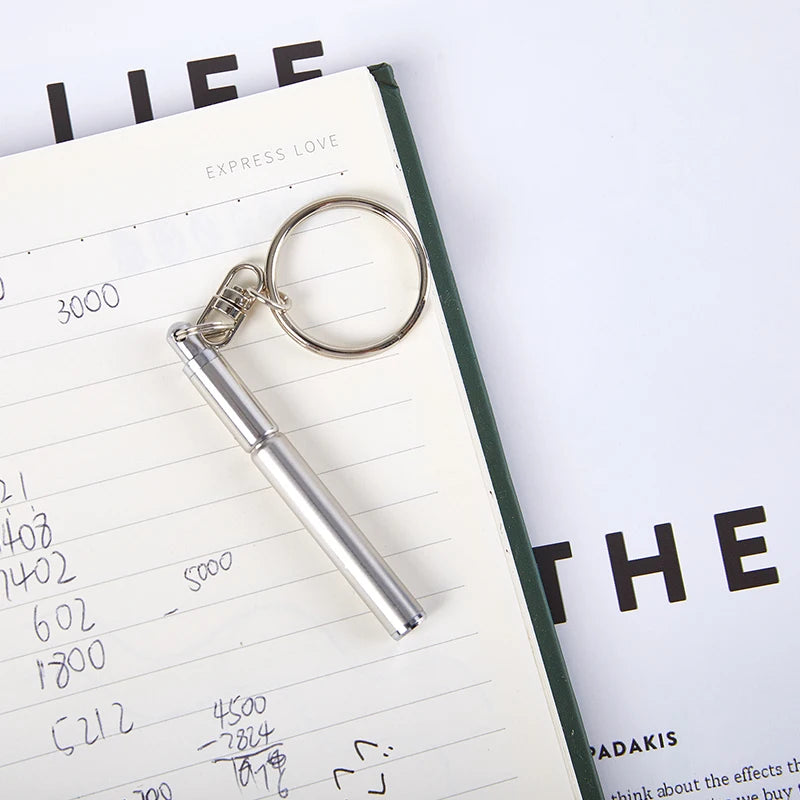 LIFE
EXPRESS LOVE
3000
21
1408
1402
5000
602
1800
5212
4500
-2824
THE
PADAKIS
think about the effects th
we buy